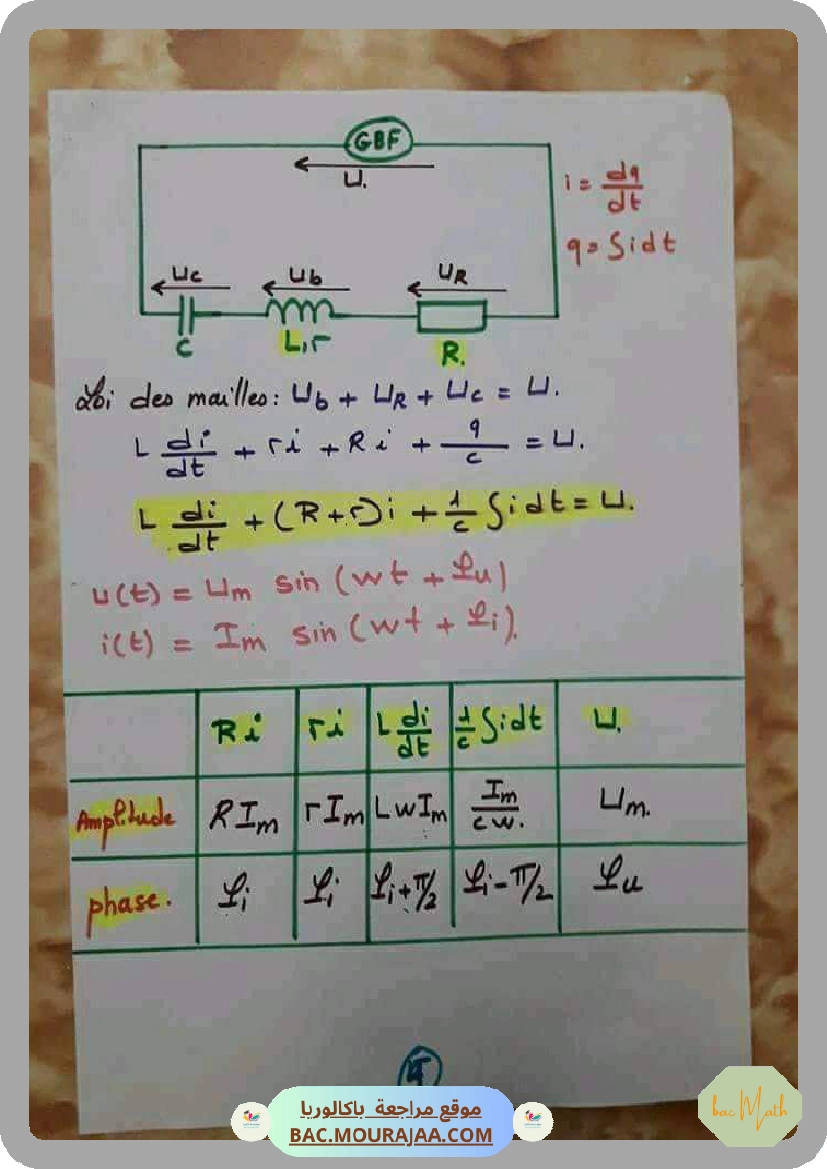 GBF
u.
i = dq/dt
q = ∫idt
uc ub uR
c L,r R.
Loi des mailles: ub + uR + uc = u.
L di/dt + ri + Ri + q/c = u.
L di/dt + (R+r)i + 1/c ∫idt = u.
u(t) = um sin (wt + φu)
i(t) = Im sin (wt + φi).
Ri ri L di/dt 1/c ∫idt u.
Amplitude RIm rIm LwIm Im/cw. um.
phase. φi φi φi+π/2 φi-π/2 φu
موقع مراجعة باكالوريا
BAC.MOURAJAA.COM
bac Math